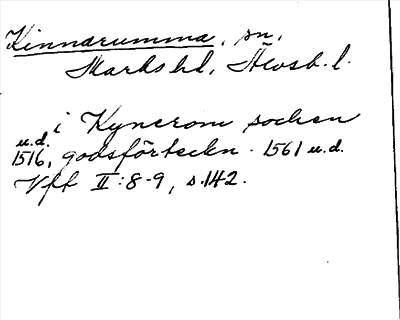 Kinnarumma, sn,
Marks hd, Älvsb. l.
i Kynerom sochen
u.d.
1516, godsförteckn. 1561 u.d.
Vff II:8-9, s.142.